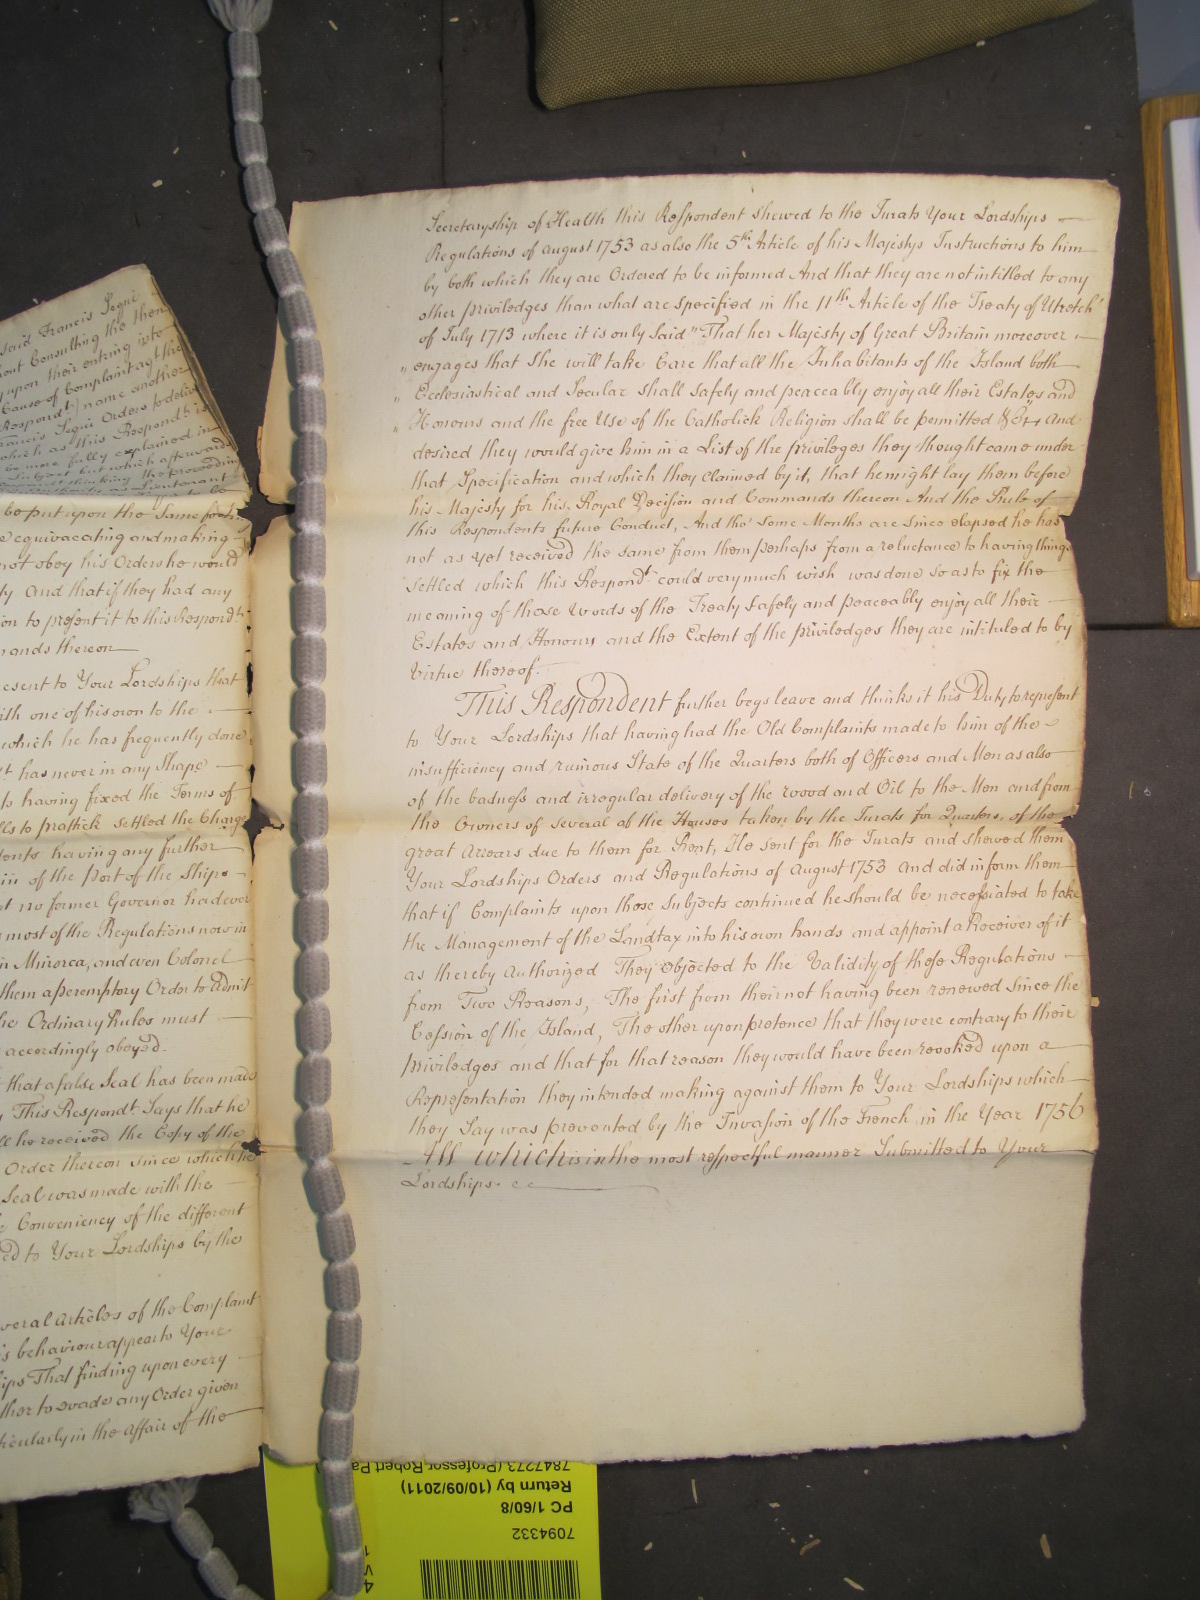 said Francis Segui
out Consulting the then
upon their entring into
Cause of Complaint agt the
Respondt.) name another
Francis Segui Orders to deliver
which as this Respondt is
be more fully explained in
but which afterwards
Lieutenant
be put upon the Same foot
equivacating and making
not obey his Orders he would
ly And that if they had any
on to present it to this Respondt
ands thereon
esent to Your Lordships that
ith one of his own to the
which he has frequently done
t has never in any Shape
to having fixed the Terms of
lls to prattick settled the Charge
ents having any further
in of the Port of the Ships
t no former Governor had ever
most of the Regulations now in
in Minorca, and even Colonel
them a peremptory Order to Admit
he Ordinary Rules must
accordingly obeyed.
that a false Seal has been made
This Respondt. Says that he
ll he received the Copy of the
Order thereon since which he
Seal was made with the
Conveniency of the different
ed to Your Lordships by the
veral Articles of the Complaint
is behaviour appear to Your
ips That finding upon every
ther to evade any Order given
ticularly in the affair of the
Secretaryship of Health this Respondent shewed to the Jurats Your Lordships
Regulations of august 1753 as also the 5th. Article of his Majestys Instructions to him
by both which they are Ordered to be informed And that they are not intitled to any
other priviledges than what are specified in the 11th. Article of the Treaty of Utrech
of July 1713 where it is only Said "That her Majesty of Great Britain moreover
" engages that She will take Care that all the Inhabitants of the Island both
" Ecclesiastical and Secular shall safely and peaceably enjoy all their Estates and
" Honours and the free Use of the Catholick Religion shall be permitted &c" And
desired they would give him in a List of the privileges they thought came under
that Specification and which they Claimed by it, that he might lay them before
his Majesty for his Royal Decision and Commands thereon And the Rule of
this Respondents future Conduct, And tho' some Months are since elapsed he has
not as yet received the same from them perhaps from a reluctance to having things
settled which this Respondt. could very much wish was done so as to fix the
meaning of those Words of the Treaty Safely and peaceably enjoy all their
Estates and Honours and the Extent of the priviledges they are intituled to by
Virtue thereof.
This Respondent further begs leave and thinks it his Duty to represent
to Your Lordships that having had the Old Complaints made to him of the
insufficiency and ruinous State of the Quarters both of Officers and Men as also
of the badness and irregular delivery of the wood and Oil to the Men and from
the Owners of several of the Houses taken by the Jurats for Quarters, of the
great Arrears due to them for Rent, He sent for the Jurats and shewed them
Your Lordships Orders and Regulations of August 1753 And did inform them
that if Complaints upon those Subjects continued he should be necessiated to take
the Management of the Landtax into his own hands and appoint a Receiver of it
as thereby Authorized They Objected to the Validity of these Regulations
from Two Reasons, The first from their not having been renewed since the
Cession of the Island, The other upon pretence that they were contrary to their
priviledges and that for that reason they would have been revoked upon a
Representation they intended making against them to Your Lordships which
they Say was prevented by the Invasion of the French in the Year 1756
All which is in the most respectful manner Submitted to Your
Lordships.
7847273 (Professor Robert Pa
Return by (10/09/2011)
PC 1/60/8
7094332